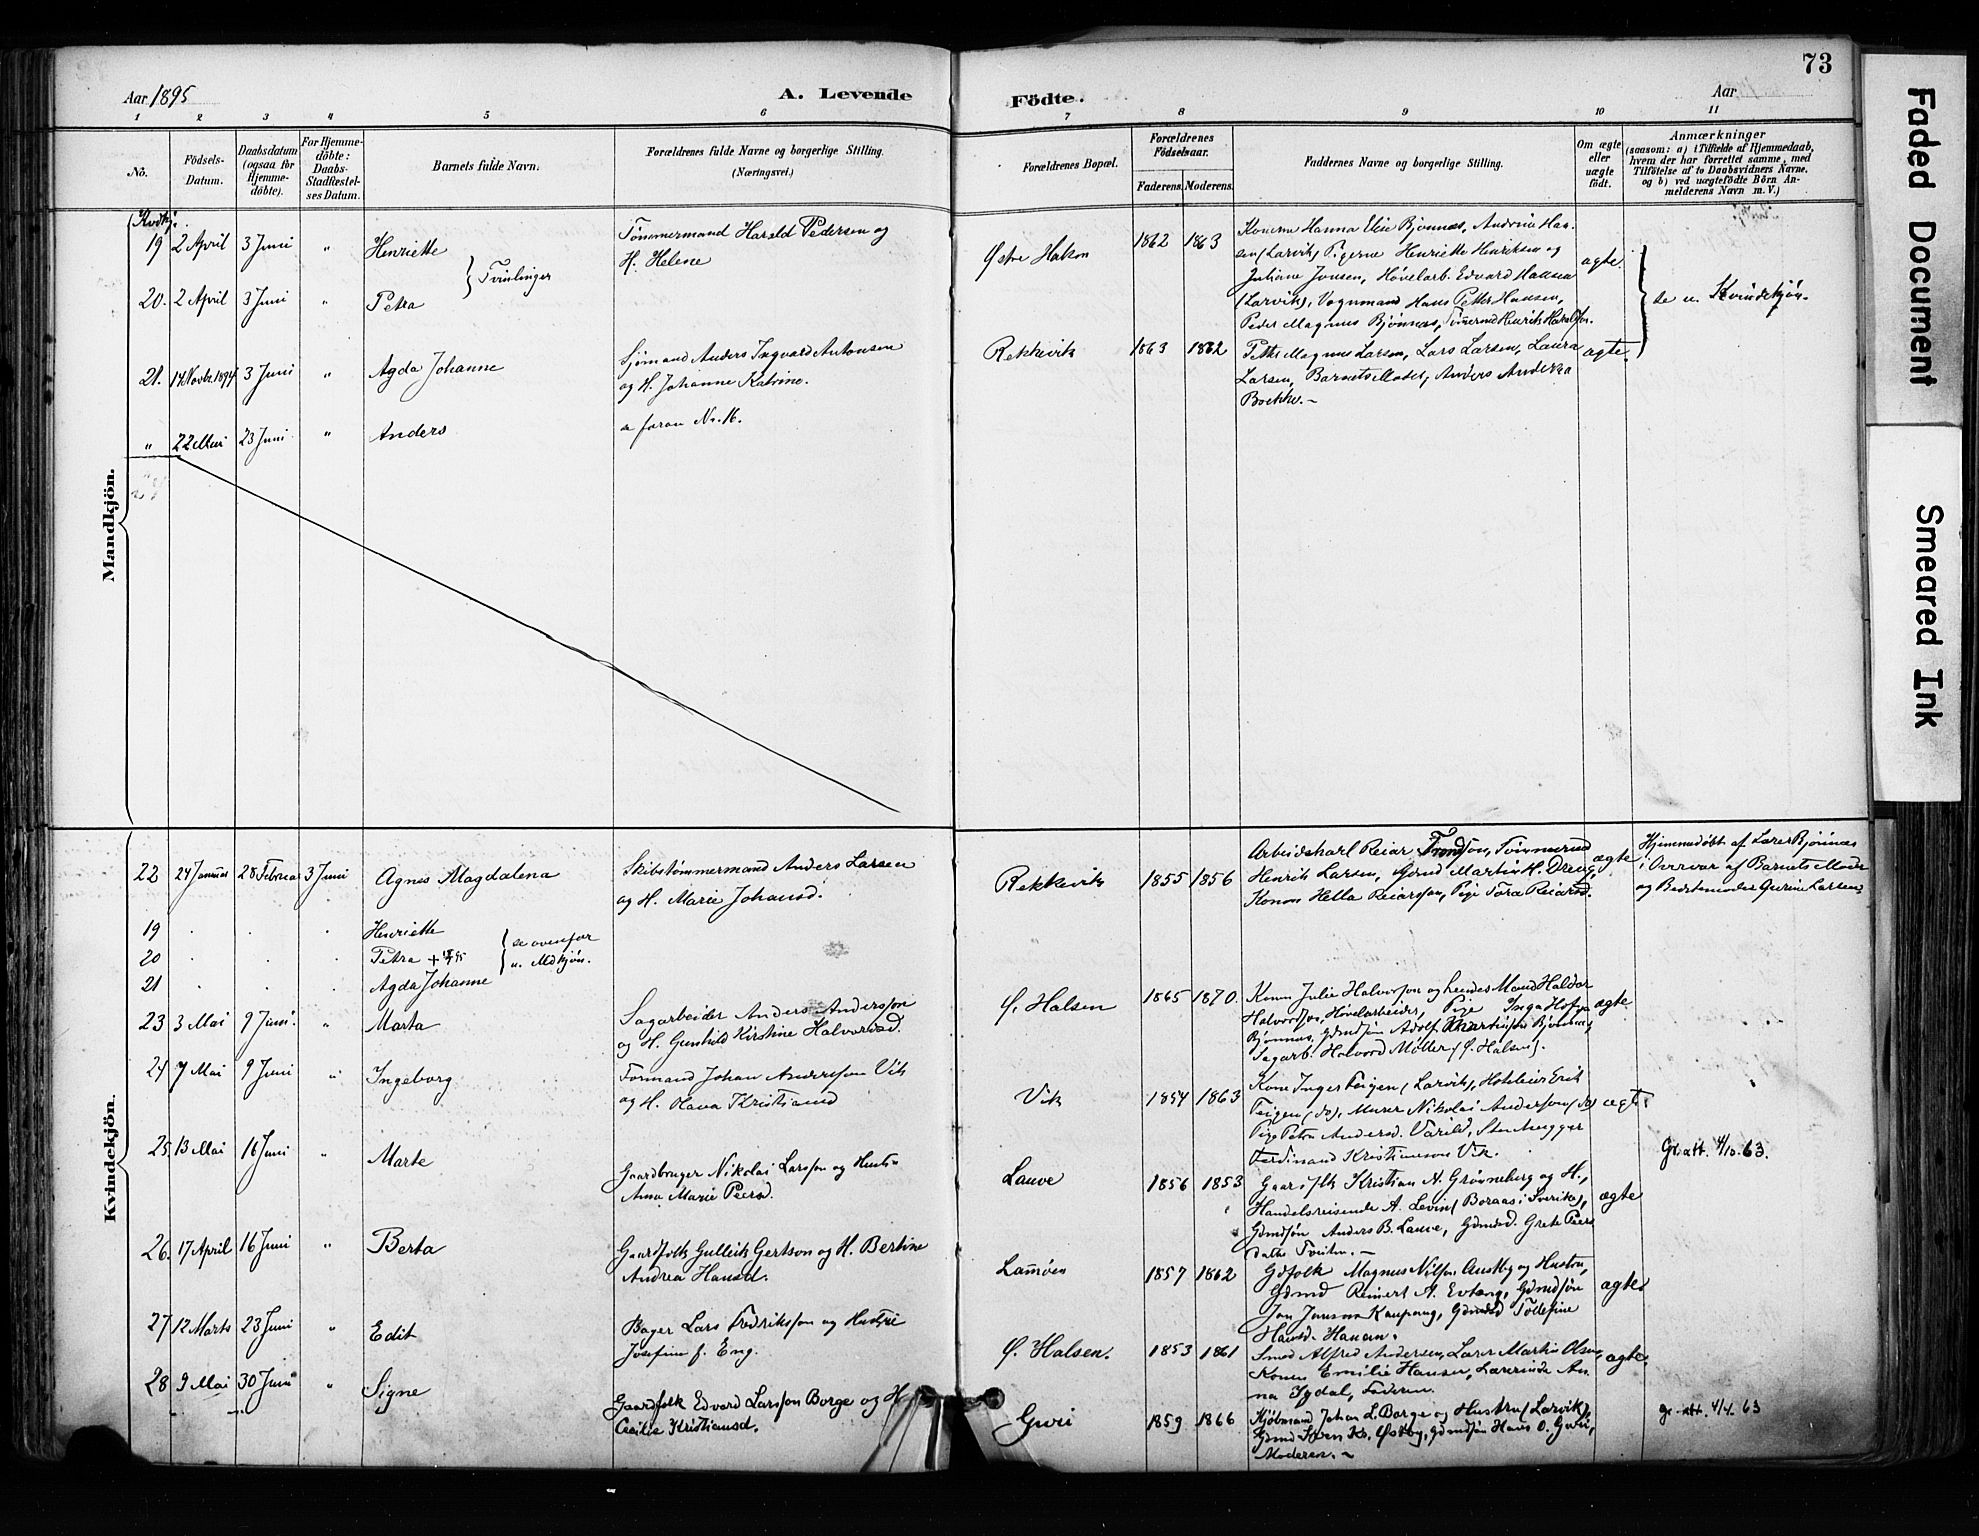 73
Aar 1895
A. Levende
Födte.
Aar
1 2 3 4 5 6 7 8 9 10 11
No.
Födsels-
Datum.
Daabsdatum
(ogsaa for
Hjemme-
döbte).
For Hjemme-
döbte:
Daabs-
Stadfæstel-
ses Datum.
Barnets fulde Navn.
Forældrenes fulde Navne og borgerlige Stilling.
(Næringsvei.)
Forældrenes Bopæl.
Forældrenes
Födselsaar.
Faderens. Moderens.
Faddernes Navne og borgerlige Stilling.
Om ægte
eller
uægte
födt.
Anmærkninger
(saasom: a) i Tilfælde af Hjemmedaab,
hvem der har forrettet samme, med
Tilföielse af to Daabsvidners Navne,
og b) ved uægtefödte Börn An-
melderens Navn m.V.)
Mandkjön.
(Kvdkj.
19 2 April 3 Juni " Henriette
} Tvillinger
Tømmermand Harald Pedersen og
H. Helene
Østre Halsen 1862 1863
Konerne Hanna Elise Bjønnæs, Andrine Han-
sen (Larvik) Pigerne Henriette Henriksen og
Juliane Jonsen, Høvelarb. Edvard Hansen
(Larvik), Vognmand Hans Petter Hansen,
Peder Magnus Bjønnæs, Tømmermd Henrik Haraldsen.
ægte.
se u. Kvindekjøn.
20. 2 April 3 Juni " Petra
21. 14 Novbr. 1894 3 Juni " Agda Johanne
Sjømand Anders Ingvard Antonsen
og H. Johanne Katrine.
Rekkevik 1863 1862
Petter Magnus Larsen, Lars Larsen, Laura
Larsen, Barnets Moder, Anders Andersen
ægte.
" 22 Mai 23 Juni " Anders
se foran No. 16.
Kvindekjön.
22 24 Januar 28 Februar 3 Juni Agnes Magdalena
Skibstømmermand Anders Larsen
og H. Marie Johansd.
Rekkevik 1855 1856
Arbeidskarl Reiar Trondsen, Tømmermd
Henrik Larsen, Gbmd Martin H. Dreng,
Konen Hella Reiarssøn, Pige Tora Reiarsd.
ægte
Hjemmedøbt af Lærer Bjønnæs
i Overvær af Barnets Moder
og Bedstemoder Gurine Larsen
19 . . . Henriette
20 . . . Petra +
21 . . . Agda Johanne
} se ovenfor
u. Mdkjøn.
23 3 Mai 9 Juni. " Marta
Sagarbeider Anders Anderssøn
og H. Gunhild Kirstine Halvorsd.
Ø. Halsen 1865 1870.
Kone Julie Halvorssøn og hendes Mand Haldor
Halvorssøn, Høvelarbeider, Pige Inga Hofga
Bjønnes, Gdmdsøn Adolf Martinsen Bjønnes,
Sagarb. Halvord Møller (Ø. Halsen).
ægte
24 7 Mai 9 Juni " Ingeborg
Formand Johan Anderssøn Vik
og H. Olava Kristiansd
Vik 1854 1863
Kone Inger Teigen (Larvik), Hotelleier Erik
Teigen (do), Murer Nikolai Anderssøn (do)
Pige Petra Andersd. Varild, Stenhugger
Ferdinand Kristiansson Vik.
ægte
25 13 Mai 16 Juni " Marte
Gaardbruger Nikolai Larssøn og Hustr.
Anna Marie Peersd.
Lauve 1856 1853
Gaardfolk Kristian N. Grønneberg og H.,
Handelsreisende A. Levin (Boraas i Sverike),
Gdmdsøn Anders B. Lauve, Gdmdsd. Grete Peers
datter Tveiten.
ægte
Gr. att. 4/10. 63.
26. 17 April 16 Juni " Berta
Gaardfolk Gulleik Gertson og H. Bertine
Andrea Hansd.
Lamøen 1857 1862
Gdfolk Magnus Nilsen Austby og Hustru,
Gdmd Reinert A. Evtang, Gdmdsøn
Jon Jonsson Kaupang, Gdmdsd Tollefine
Hansd. Hanan.
ægte
27 12 Marts 23 Juni " Edit
Bager Lars Fredrikssøn og Hustru
Josefine f. Eng.
Ø. Halsen. 1853 1861
Smed Alfred Andersen, Lærer Martin Olsen,
Konen Emilie Hansen, Lærerinde An-
na Igdal, Faderen.
ægte.
28 9 Mai 30 Juni " Signe
Gaardfolk Edvard Larssøn Borge og H.
Cecilie Kristiansd.
Gurri 1859 1866
Kjøbmand Johan L. Borge og Hustru (Larvik),
Gdmd Sven Kr. Østby, Gdmdsøn Hans O. Gurri,
Moderen.
gr. att. 4/4. 63
Faded Document
Smeared Ink